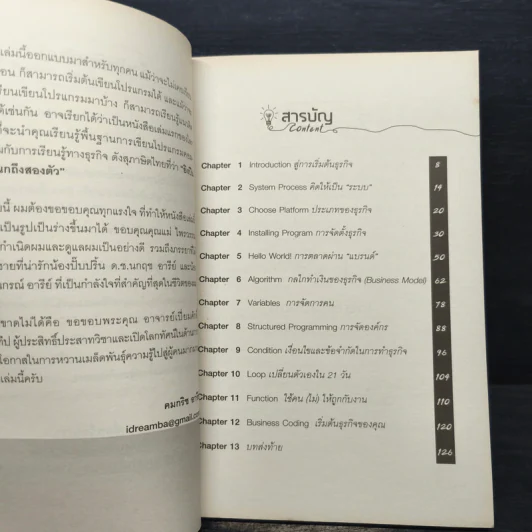 เล่มนี้ออกแบบมาสำหรับทุกคน แม้ว่าจะไม่เคย
ก็สามารถเริ่มต้นเขียนโปรแกรมได้
เขียนโปรแกรมมาบ้าง ก็สามารถเรียนรู้
ได้เช่นกัน อาจเรียกได้ว่าเป็นหนังสือเล่มแรก
ที่จะนำคุณเรียนรู้พื้นฐานการเขียนโปรแกรม
กับการเรียนรู้ทางธุรกิจ ดังสุภาษิตไทยที่ว่า
นกถึงสองตัว"
นี้ ผมต้องขอขอบคุณทุกแรงใจ ที่ทำให้หนังสือ
เป็นรูปเป็นร่างขึ้นมาได้ ขอบคุณคุณแม่
กำเนิดผมและดูแลผมเป็นอย่างดี รวมถึงภรรยา
ชายที่น่ารักน้องปั๊บปริ้น ด.ช.นกฤช อารีย์
อารีย์ ที่เป็นกำลังใจที่สำคัญที่สุดในชีวิต
ขาดไม่ได้คือ ขอขอบพระคุณ อาจารย์
ผู้ประสิทธิ์ประสาทวิชาและเปิดโลกทัศน์
โอกาสในการหวานเมล็ดพันธุ์ความรู้ไปสู่ผู้คน
เล่มนี้ครับ
คมกริช
idreamba@gmail.com
สารบัญ
Content
Chapter 1 Introduction สู่การเริ่มต้นธุรกิจ 8
Chapter 2 System Process คิดให้เป็น "ระบบ" 14
Chapter 3 Choose Platform ประเภทของธุรกิจ 20
Chapter 4 Installing Program การจัดตั้งธุรกิจ 30
Chapter 5 Hello World! การตลาดผ่าน "แบรนด์" 50
Chapter 6 Algorithm กลไกทำเงินของธุรกิจ (Business Model) 62
Chapter 7 Variables การจัดการคน 78
Chapter 8 Structured Programming การจัดองค์กร 88
Chapter 9 Condition เงื่อนไขและข้อจำกัดในการทำธุรกิจ 96
Chapter 10 Loop เปลี่ยนตัวเองใน 21 วัน 104
Chapter 11 Function ใช้คน (ไม่) ให้ถูกกับงาน 110
Chapter 12 Business Coding เริ่มต้นธุรกิจของคุณ 120
Chapter 13 บทส่งท้าย 126